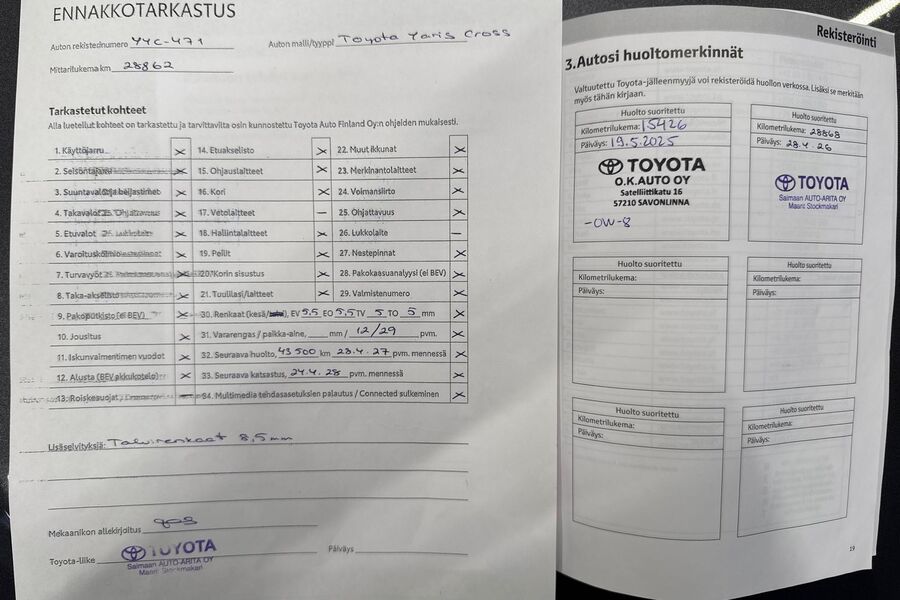 ENNAKKOTARKASTUS
Auton rekisterinumero YYC-471 Auton malli/tyyppi Toyota Yaris Cross
Mittarilukema km 28862
Tarkastetut kohteet
Alla luetellut kohteet on tarkastettu ja tarvittavilta osin kunnostettu Toyota Auto Finland Oy:n ohjeiden mukaisesti.
1. Käyttöjarru x 14. Etuakselisto x 22. Muut ikkunat x
2. Seisontajarru x 15. Ohjauslaitteet x 23. Merkinantolaitteet x
3. Suuntavalot ja heijastimet x 16. Kori x 24. Voimansiirto x
4. Takavalot x 17. Vetolaitteet – 25. Ohjattavuus x
5. Etuvalot x 18. Hallintalaitteet x 26. Lukkolaite –
6. Varoituskolmio x 19. Peilit x 27. Nestepinnat x
7. Turvavyöt x 20. Korin sisustus x 28. Pakokaasuanalyysi (ei BEV) x
8. Taka-akselisto x 21. Tuulilasi/laitteet x 29. Valmistenumero x
9. Pakoputkisto (ei BEV) x 30. Renkaat (kesä/ EV 5,5 EO 5,5 TV 5 TO 5 mm x
10. Jousitus x 31. Vararengas / paikka-aine, mm / 12/29 pvm. x
11. Iskunvaimentimen vuodot x 32. Seuraava huolto, 43 500 km 28.4.27 pvm. mennessä x
12. Alusta (BEV akkukotelo) x 33. Seuraava katsastus, 24.4.28 pvm. mennessä x
13. Roiskesuojat 34. Multimedia tehdasasetuksien palautus / Connected sulkeminen x
Lisäselvityksiä: Talvirenkaat 8,5mm
Mekaanikon allekirjoitus
Toyota-liike TOYOTA Päiväys
Saimaan AUTO-ARITA OY
Maarit Stockmakari
Rekisteröinti
3.Autosi huoltomerkinnät
Valtuutettu Toyota-jälleenmyyjä voi rekisteröidä huollon verkossa. Lisäksi se merkitään
myös tähän kirjaan.
Huolto suoritettu
Kilometrilukema: 15426
Päiväys: 19.5.2025
TOYOTA
O.K.AUTO OY
Satelliittikatu 16
57210 SAVONLINNA
-OW-8
Huolto suoritettu
Kilometrilukema: 28868
Päiväys: 28.4.26
TOYOTA
Saimaan AUTO-ARITA OY
Maarit Stockmakari
Huolto suoritettu
Kilometrilukema:
Päiväys:
Huolto suoritettu
Kilometrilukema:
Päiväys:
Huolto suoritettu
Kilometrilukema:
Päiväys:
Huolto suoritettu
Kilometrilukema:
Päiväys:
19